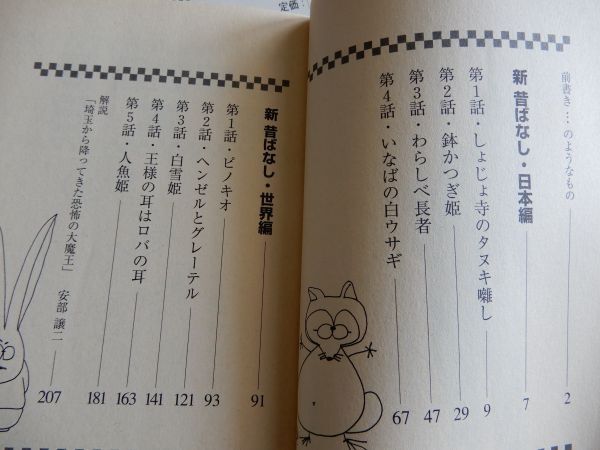 定価:
前書き…のようなもの 2
新 昔ばなし・日本編 7
第1話・しょじょ寺のタヌキ囃し 9
第2話・鉢かつぎ姫 29
第3話・わらしべ長者 47
第4話・いなばの白ウサギ 67
新 昔ばなし・世界編 91
第1話・ピノキオ 93
第2話・ヘンゼルとグレーテル 121
第3話・白雪姫 141
第4話・王様の耳はロバの耳 163
第5話・人魚姫 181
解説
「埼玉から降ってきた恐怖の大魔王」 安部 譲二 207